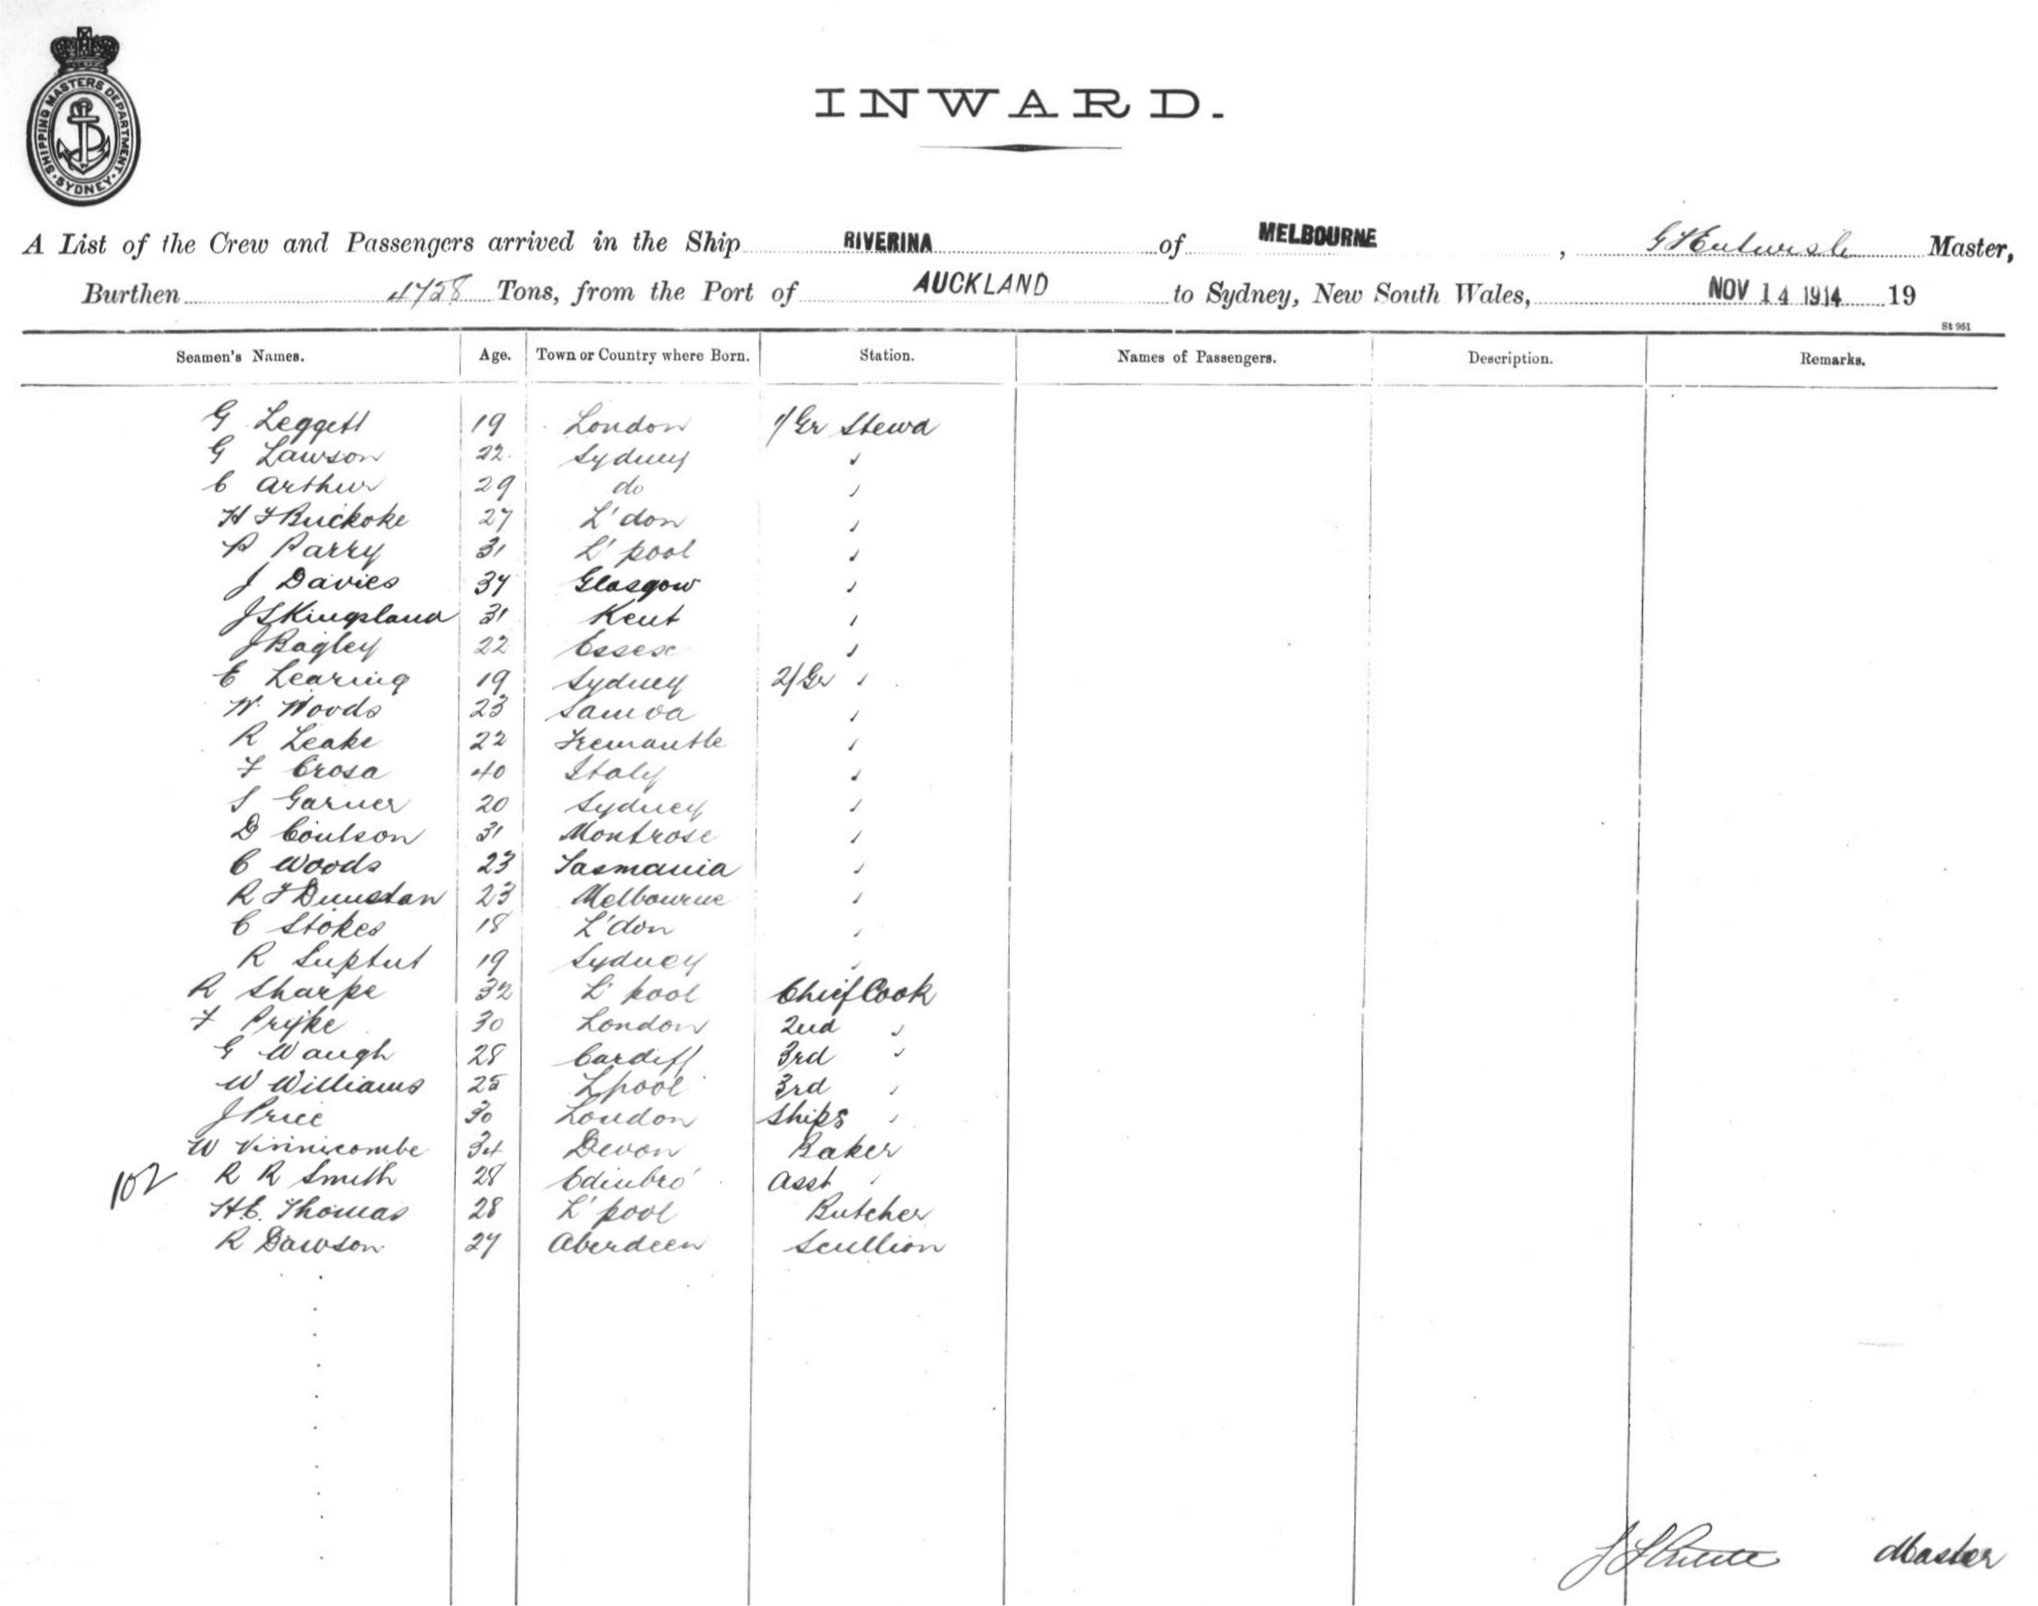 SHIPPING MASTERS DEPARTMENT
SYDNEY
INWARD.
A List of the Crew and Passengers arrived in the Ship RIVERINA of MELBOURNE, Master,
Burthen 4758 Tons, from the Port of AUCKLAND to Sydney, New South Wales, NOV 14 1914 19
St 951
Seamen's Names. Age. Town or Country where Born. Station. Names of Passengers. Description. Remarks.
G Leggett 19 London 1/Gr Stewd
G Lawson 22 Sydney "
C Arthur 29 do "
H F Buckoke 27 L'don "
P Parry 31 L'pool "
J Davies 37 Glasgow "
J S Kingsland 31 Kent "
J Bagley 22 Essex "
E Learing 19 Sydney 2/Gr "
W. Woods 23 Samoa "
R Leake 22 Fremantle "
F Crosa 40 Italy "
S Garner 20 Sydney "
D Coulson 31 Montrose "
C Woods 23 Tasmania "
R F Dunstan 23 Melbourne "
C Stokes 18 L'don "
R 19 Sydney "
R Sharpe 32 L'pool Chief Cook
F Pryke 30 London 2nd "
G Waugh 28 Cardiff 3rd "
W Williams 25 Lpool 3rd "
J Price 30 London Ships "
W Vinnicombe 34 Devon Baker
102 R R Smith 28 Edinbro' Asst "
H.C. Thomas 28 L'pool Butcher
R Dawson 27 Aberdeen Scullion
Master